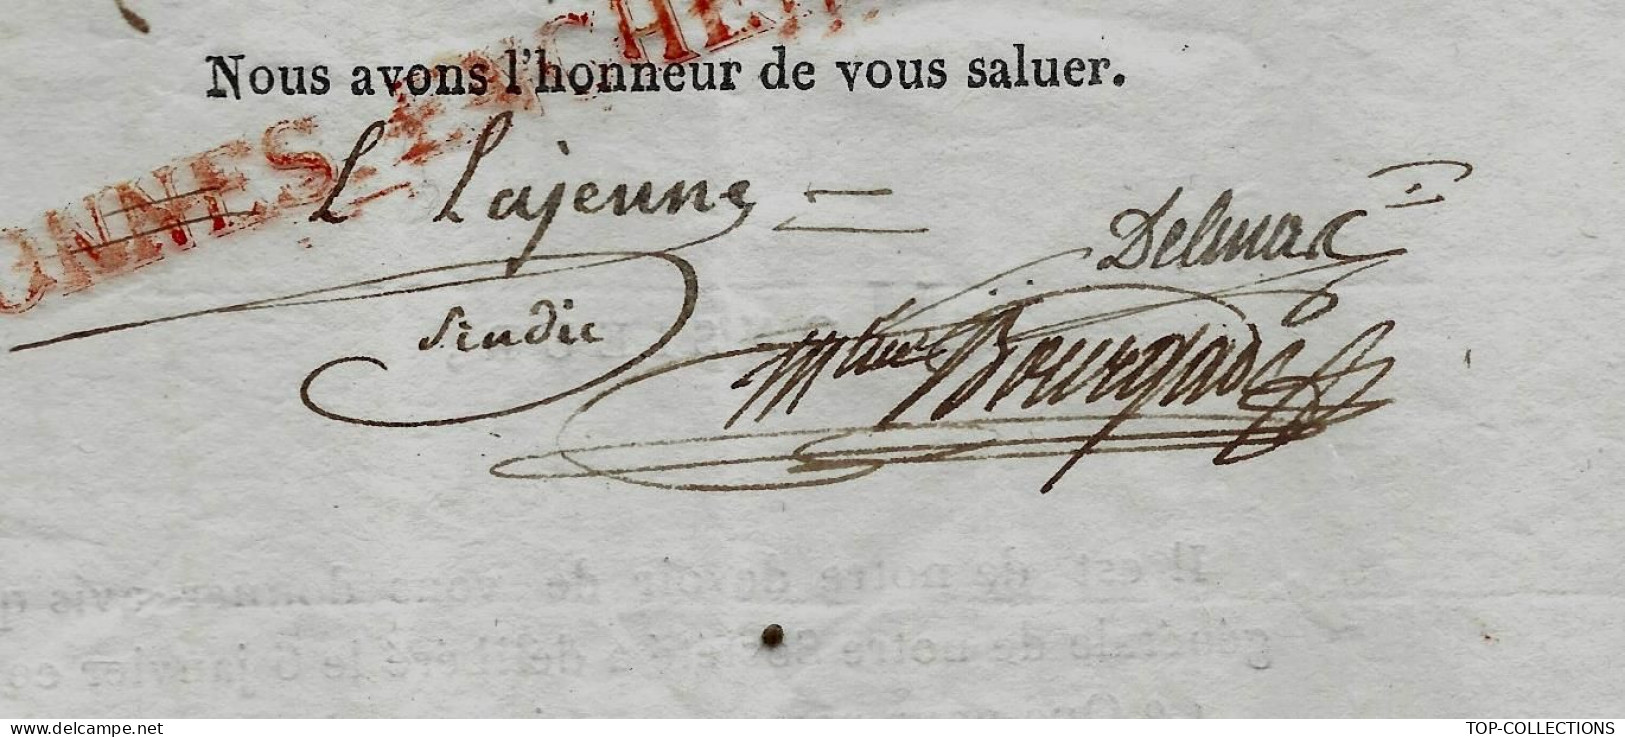 ONNES
Nous avons l'honneur de vous saluer.
L Lajeune
Delmas
Sindic
Bourgade
Il est de notre devoir de vous donner avis
générale de notre Société a délibéré le 6 janvier
TOP-COLLECTIONS